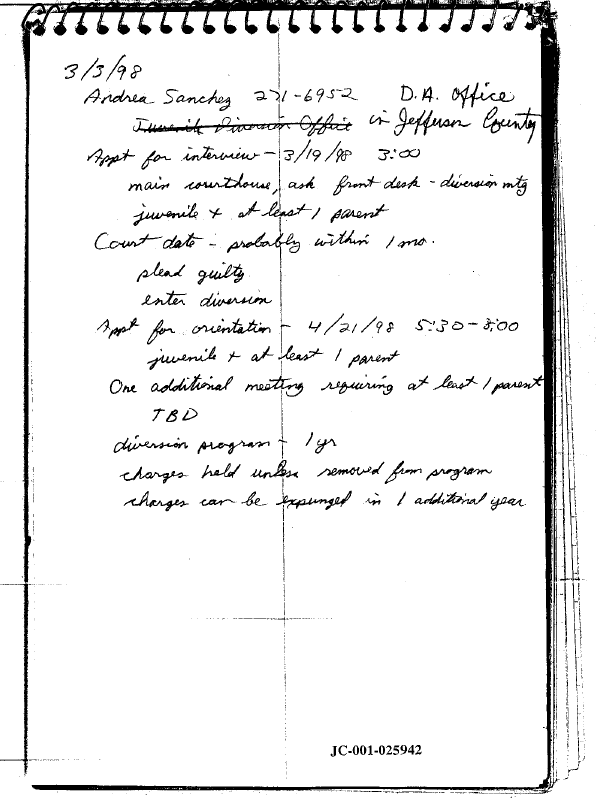 3/3/98
Andrea Sanchez 271-6952 D.A. Office
Juvenile Diversion Office in Jefferson County
Appt for interview - 3/19/98 3:00
main courthouse, ask front desk - diversion mtg
juvenile + at least 1 parent
Court date - probably within 1 mo.
plead guilty
enter diversion
Appt for orientation - 4/21/98 5:30-8:00
juvenile + at least 1 parent
One additional meeting requiring at least 1 parent
TBD
diversion program - 1 yr
charges held unless removed from program
charges can be expunged in 1 additional year
JC-001-025942